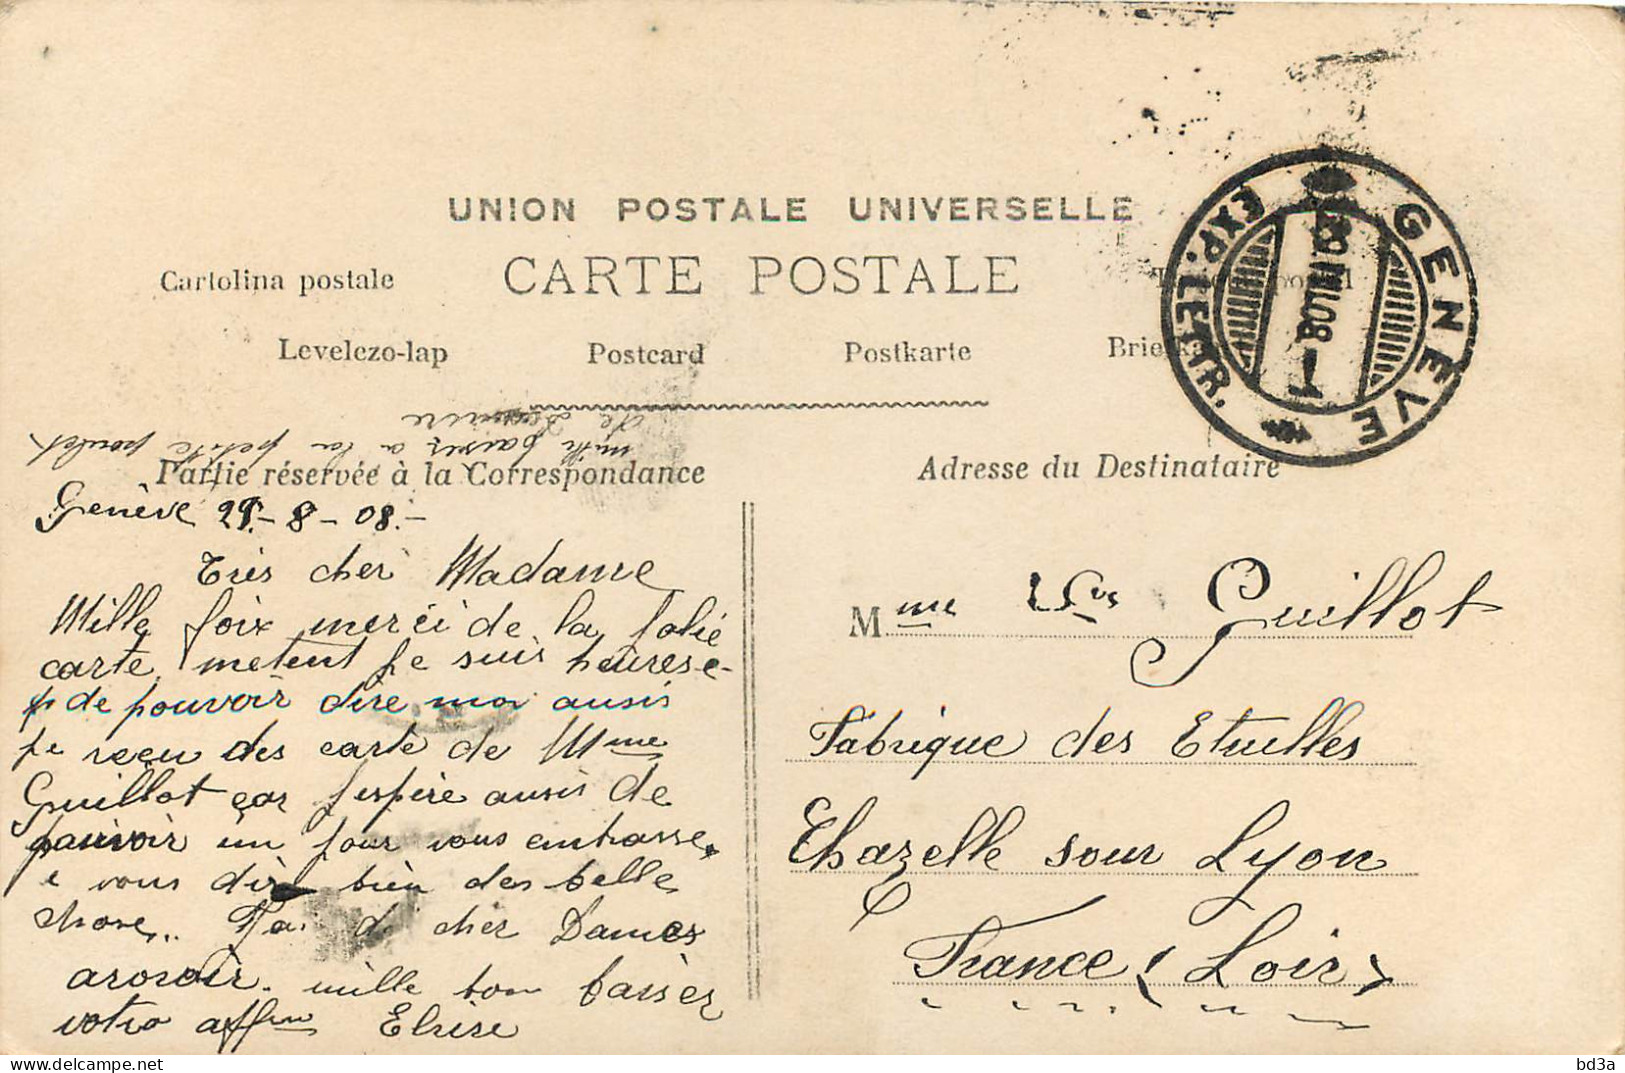 UNION POSTALE UNIVERSELLE
CARTE POSTALE
Cartolina postale
Levelezo-lap Postcard Postkarte
GENEVE
EXP. LETTR.
mille baises a la petite poulet
de Semine
Partie réservée à la Correspondance
Adresse du Destinataire
Genève 29.- 8 - 08.-
Très cher Madame
Mille foix merci de la jolie
carte, metent je suis heurese
de pouvoir dire moi ausis
je reçu des carte de Mme
Guillot çar j'espère ausis de
pouvoir un jour vous embrasse,
e vous dir bien des belle
chose..
di cher Dames
arovoir. mille bon baisser
votro affm Elrise
Mme Vve Guillot
Fabrique des Etuelles
Chazelle sour Lyon
France (Loir)
bd3a